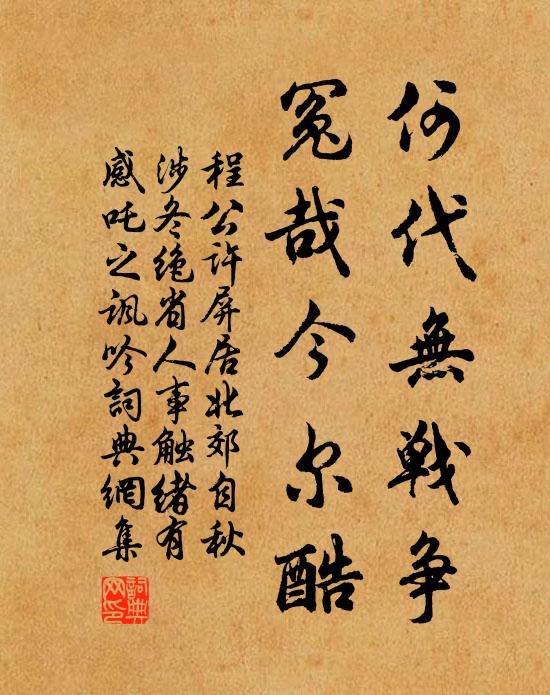 何代無戰争
冤哉今尔酷
程公许屏居北郊自秋
涉冬绝省人事触绪有
感吒之讽吟詞典網集
詞典網印